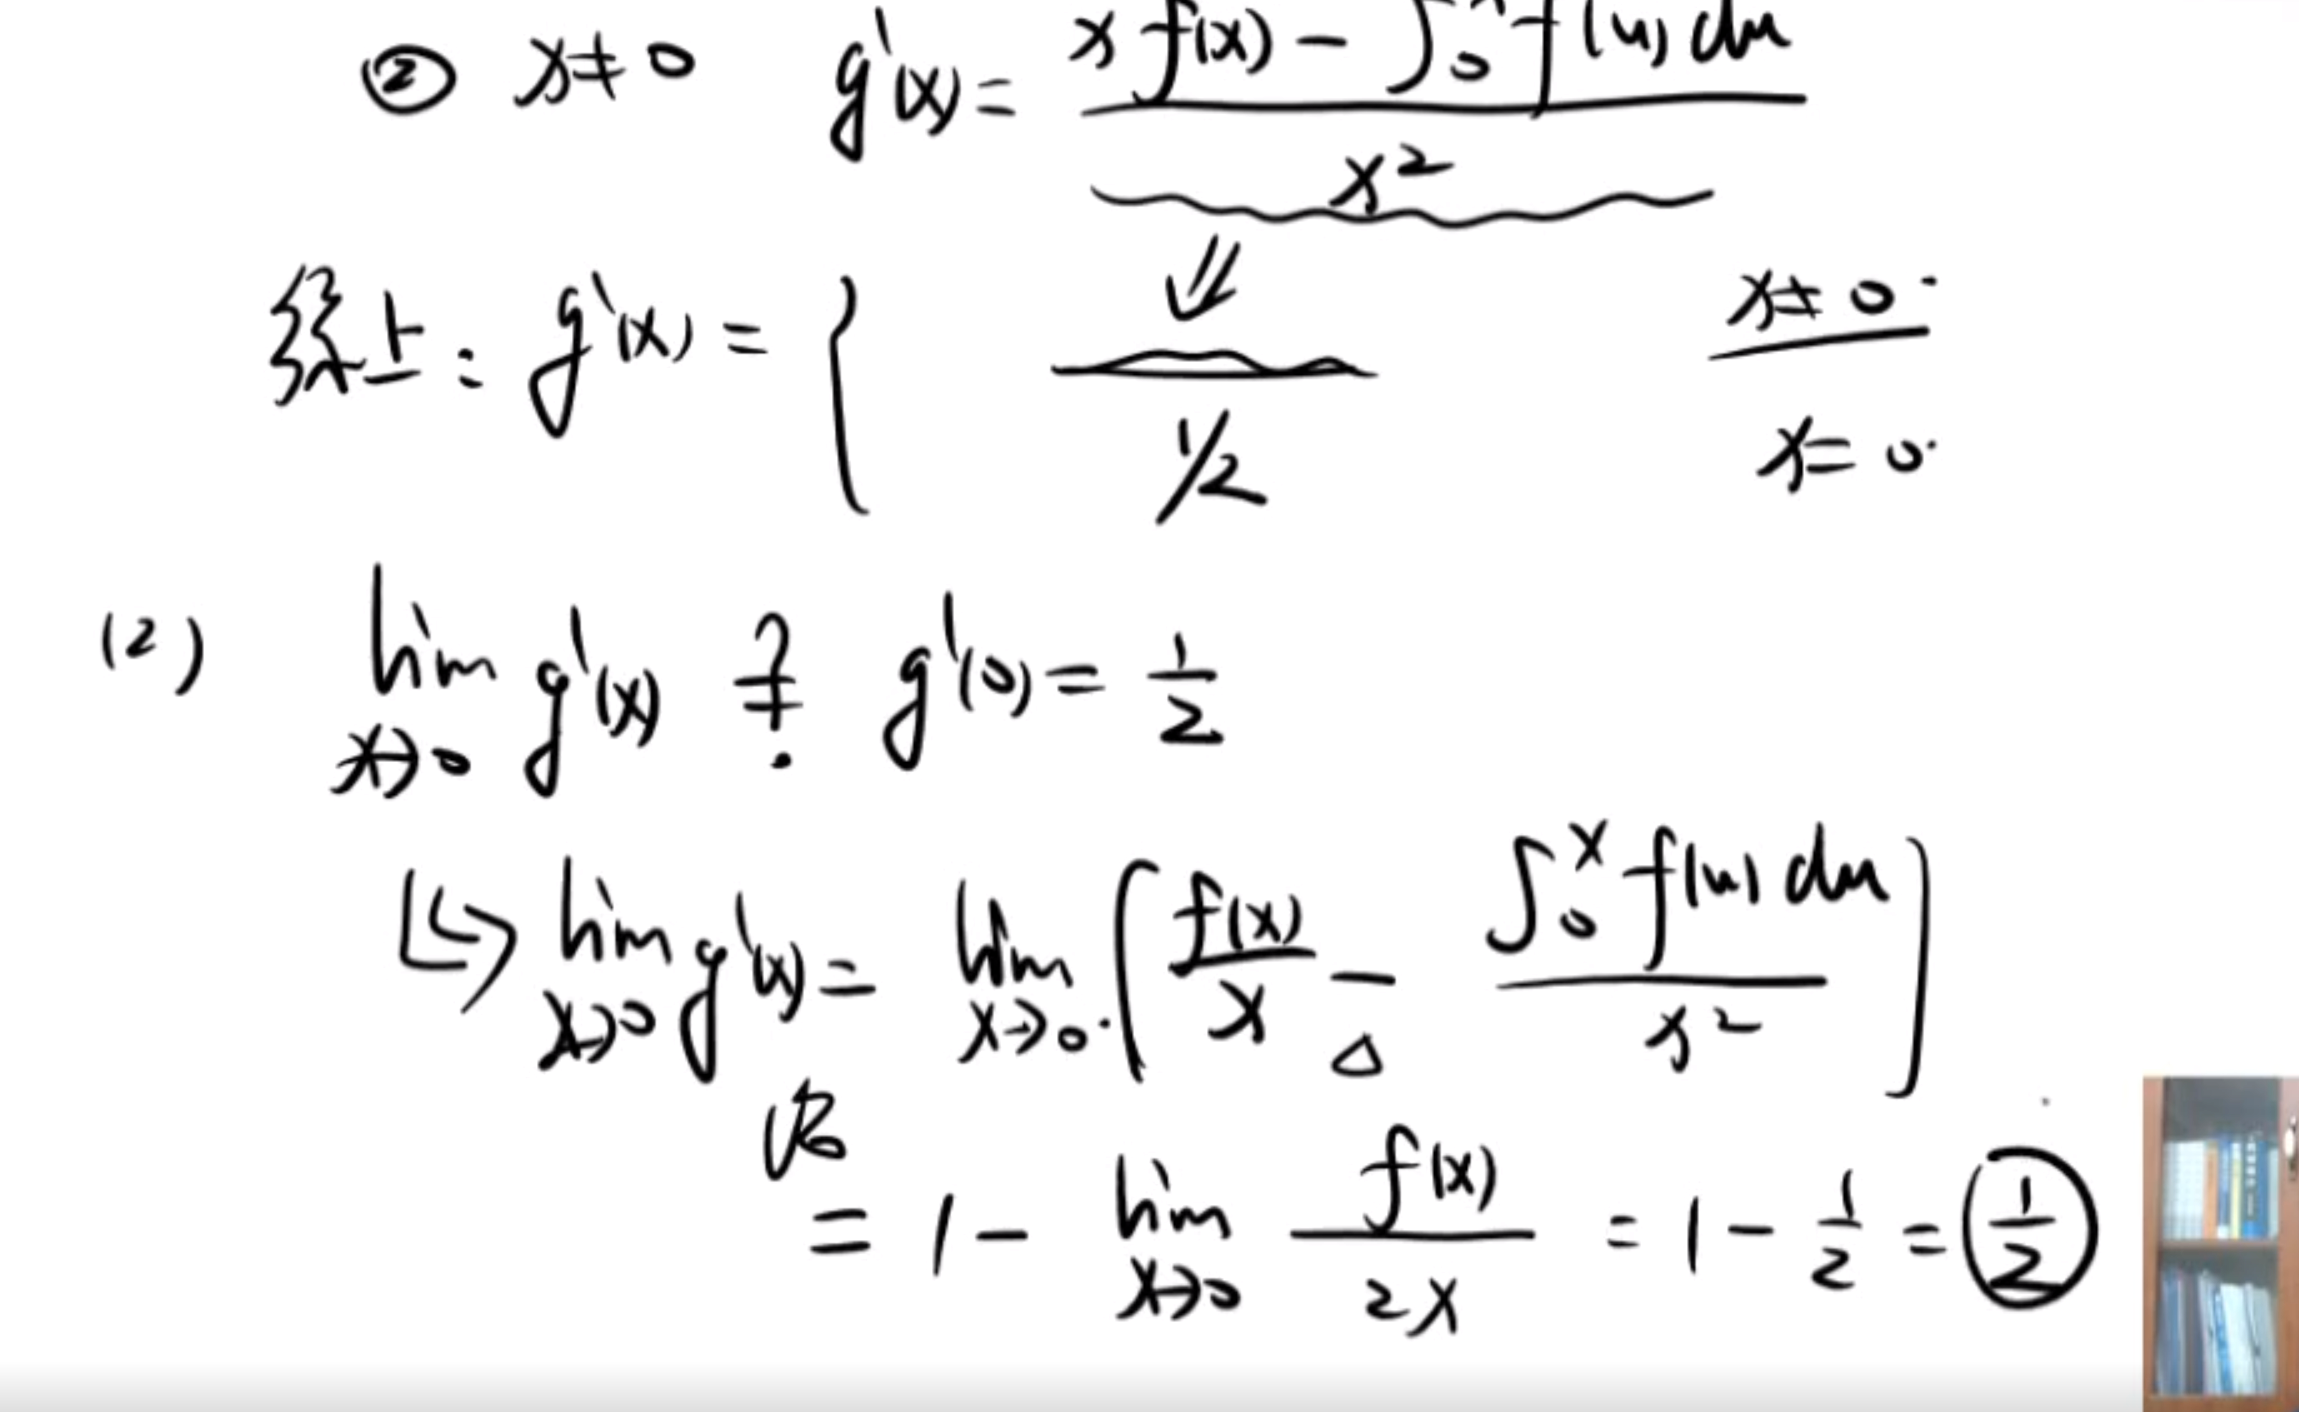 ② x≠0 g'(x) = (x f(x) - ∫₀ˣ f(u) du) / x²
综上: g'(x) = { ⇓ x≠0.
1/2 x=0.
(2) lim_{x→0} g'(x) ≟ g'(0) = 1/2
↳ lim_{x→0} g'(x) = lim_{x→0} [ f(x)/x - ∫₀ˣ f(u) du / x² ]
洛
= 1 - lim_{x→0} f(x)/2x = 1 - 1/2 = 1/2